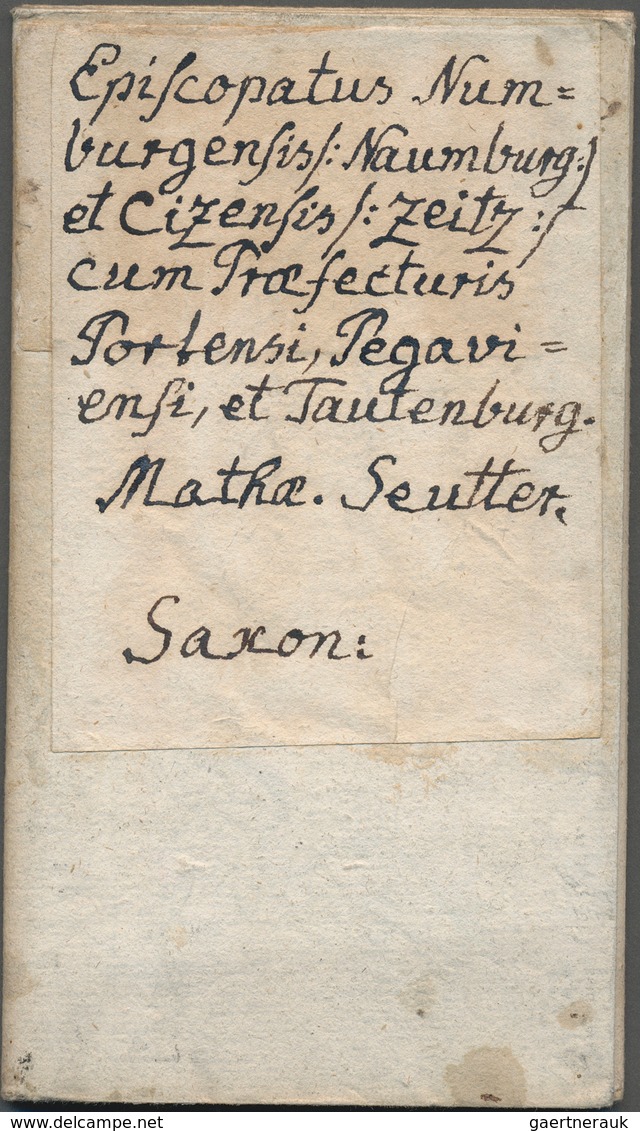 Epiſcopatus Num=
burgenſis /: Naumburg :/
et Cizenſis /: Zeitz :/
cum Præfecturis
Portensi, Pegavi=
enſi, et Tautenburg.
Mathæ. Seutter.
Saxon:
delcampe.net
gaertnerauk